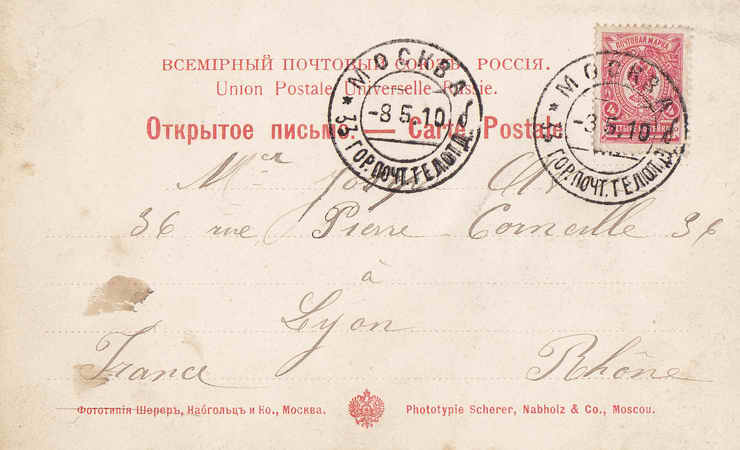 ВСЕМІРНЫЙ ПОЧТОВЫЙ СОЮЗЪ. РОССІЯ.
Union Postale Universelle. Russie.
Открытое письмо. — Carte Postale
МОСКВА
-8.5.10
33 ГОР. ПОЧТ. ТЕЛ. ОТД.
ПОЧТОВАЯ МАРКА
4
МОСКВА
10
33 ГОР. ПОЧТ. ТЕЛ. ОТД.
36 rue Pierre Corneille 36
à
Lyon
France Rhône
Фототипія Шереръ, Набгольцъ и Ко., Москва.
Phototypie Scherer, Nabholz & Co., Moscou.